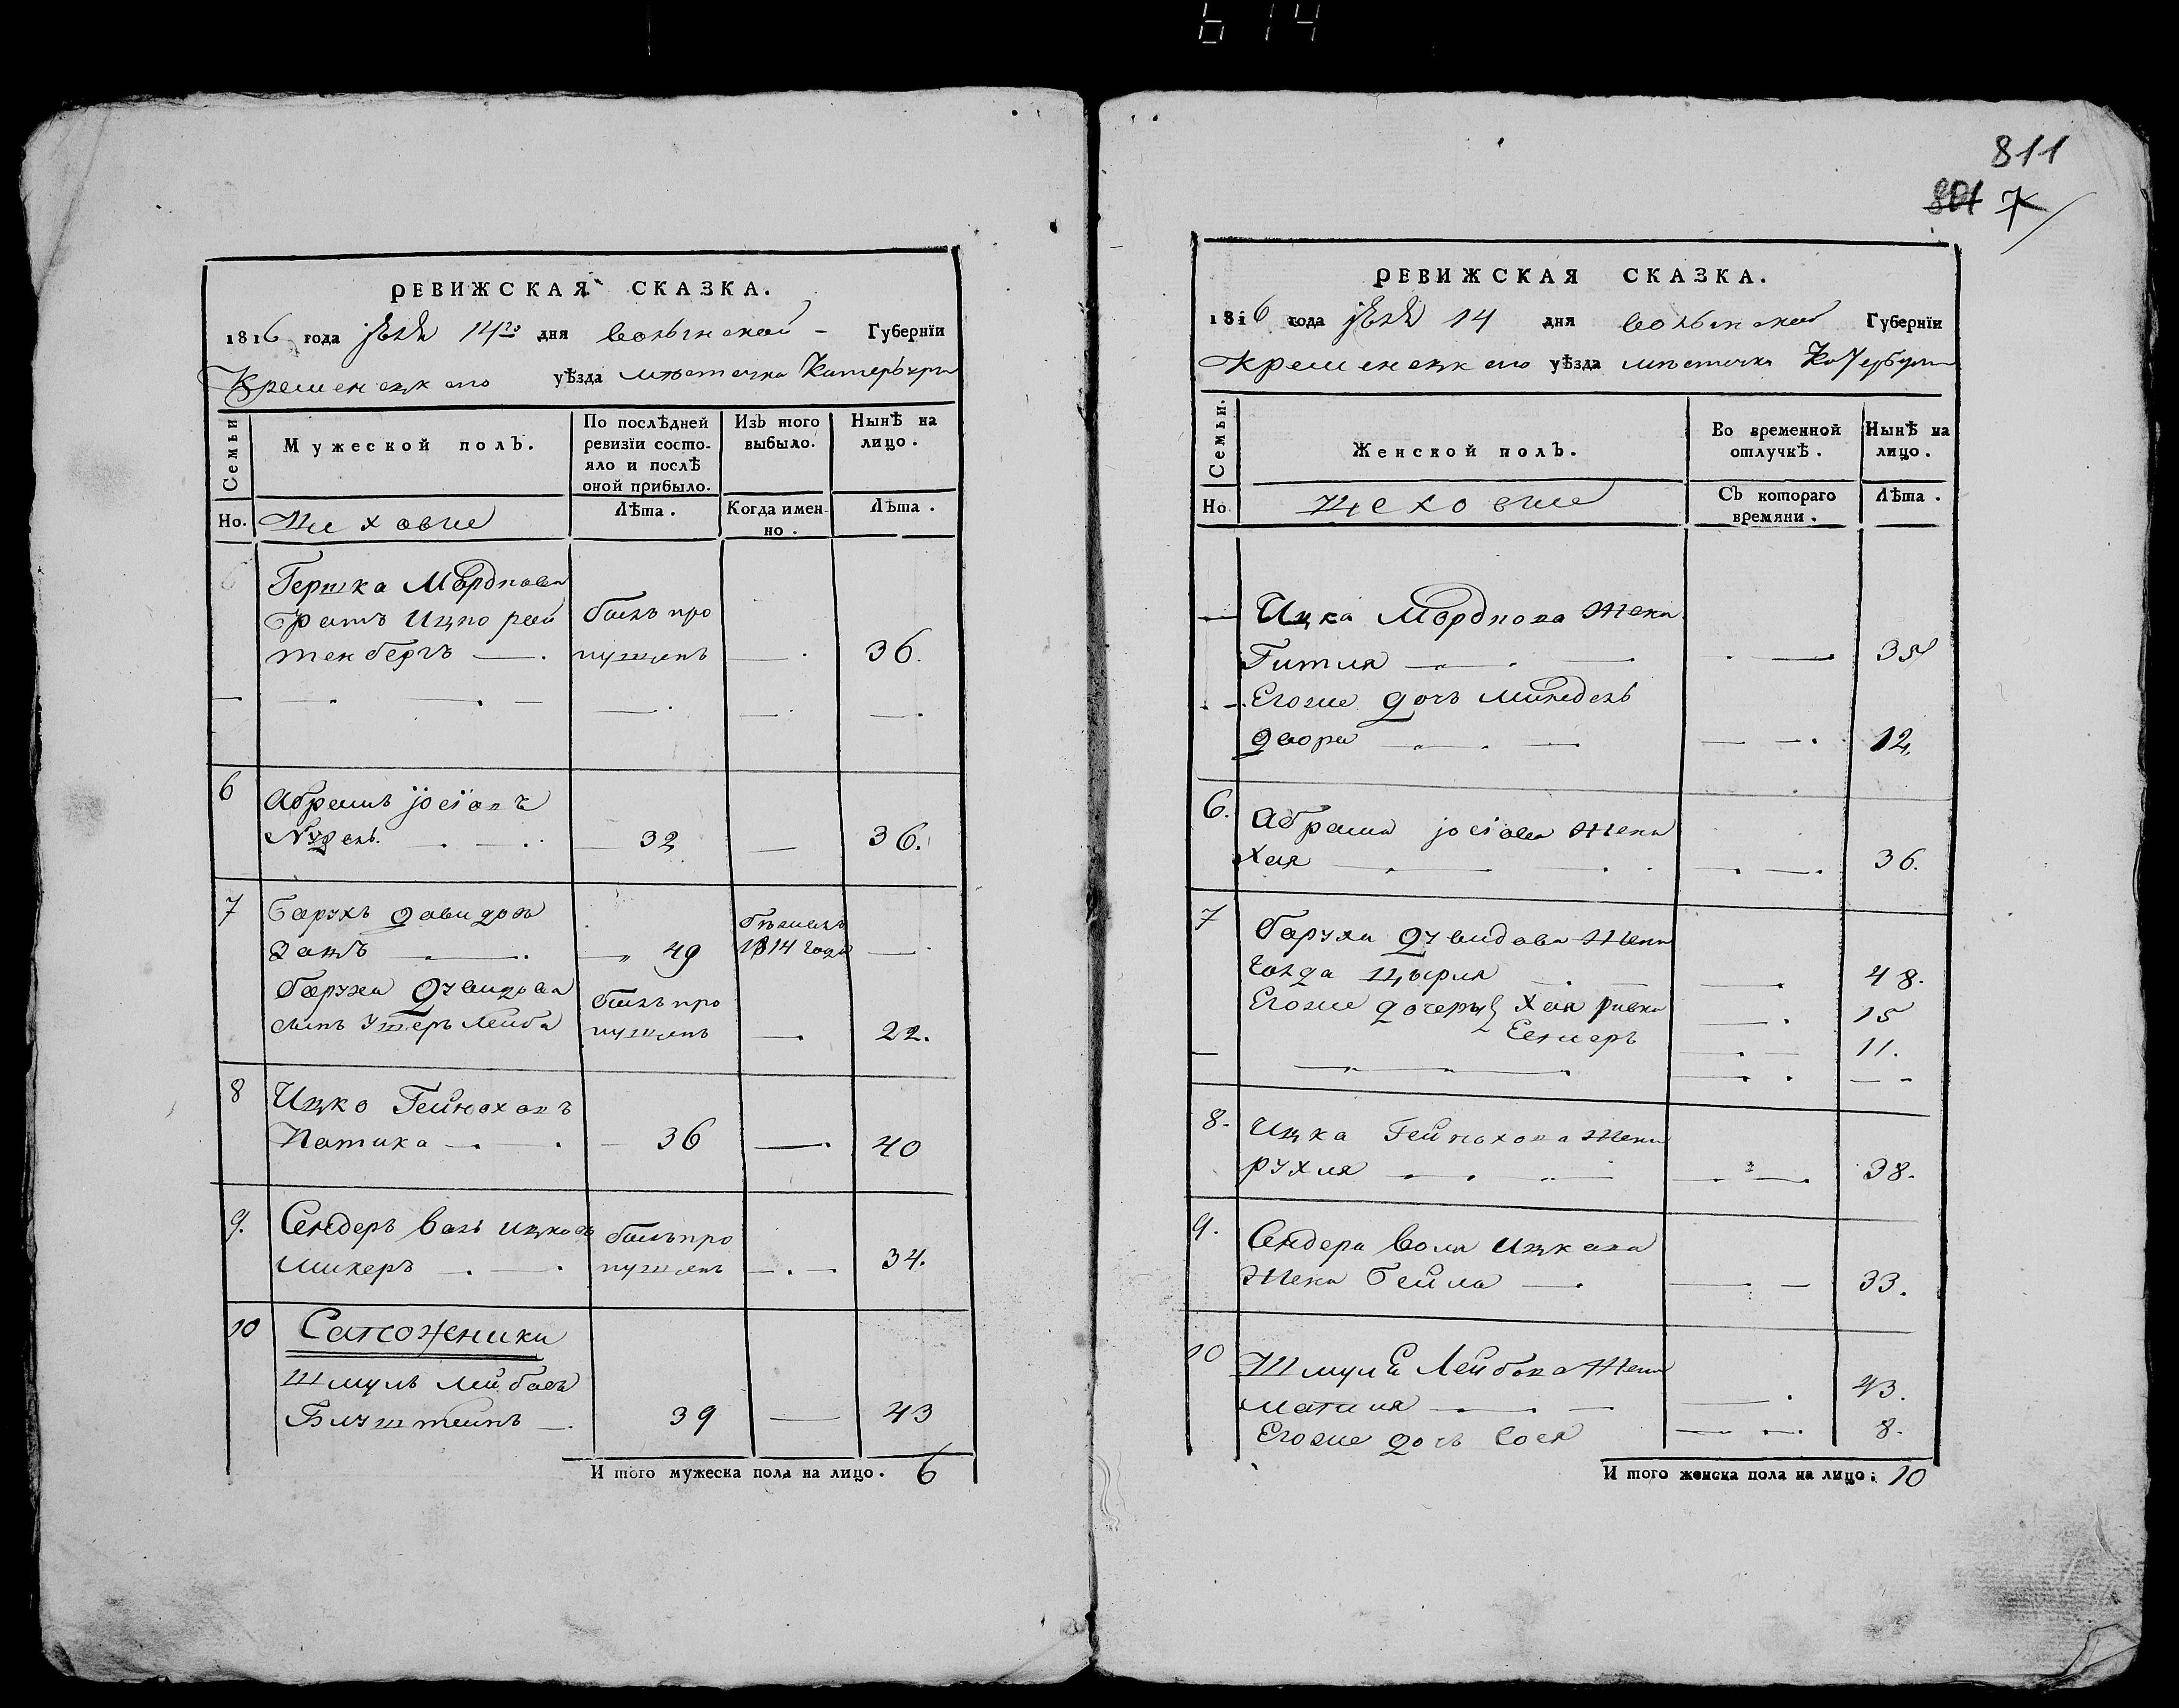 614
РЕВИЖСКАЯ СКАЗКА.
1816 года 14го дня Волынской Губернїи
Кременецкаго уѣзда мѣстечка
Семьи
Мужеской полъ.
По послѣдней ревизїи состояло и послѣ оной прибыло.
Изъ того выбыло.
Нынѣ на лицо.
Но.
Цеховые
Лѣта.
Когда именно.
Лѣта.
Гершка Мордкова
братъ Ицко рай былъ про
тенбергъ — пущенъ — 36.
6 Абрамъ јосїовъ
Нудель. 32 — 36.
7 Барухъ Давидовъ
49 1814 года —
Баруха Дувидова былъ про
сынъ Лейба пущенъ — 22.
8 Ицко Гейноховъ
36 — 40
9. Сендеръ Воль Ицковъ былъ про
пущенъ — 34.
10 Сапожники
Шмуль Лейбовъ
39 — 43
И того мужеска пола на лицо. 6
811
801 7
РЕВИЖСКАЯ СКАЗКА.
1816 года 14 дня Волынской Губернїи
Кременецкаго уѣзда мѣстечка
Семьи.
Женской полъ.
Во временной отлучкѣ.
Нынѣ на лицо.
Но
Цеховые
Съ котораго времяни.
Лѣта.
Ицка Мордкова жена
Гитля — 35
Егоже дочь
двора — 12,
6. Абрама јосїова жена
Хая — 36.
7 Баруха Дувидова жена
Голда — 48.
Егоже дочеры Хая ривка — 15
Естеръ — 11.
8. Ицка Гейнохова жена
рухля — 38.
9. Сендера Воля Ицкова
жена Бейла — 33.
10 Шмуля Лейбова жена
— 43.
Егоже дочь Сося — 8.
И того женска пола на лицо: 10